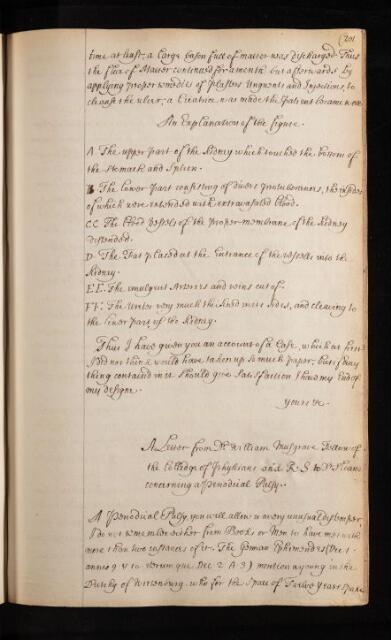 201
time at least, a Large bason full of matter was Discharged. Thus
the flux of Matter continued for a month but afterwards by
applying proper remedies of Plasters Unguents and Injections, to
cleanse the ulcer, a Cicatrix was made the Patient became well.
An Explanation of the figure.
A The upper part of the Kidney which touched the bottom of
the Stomach and Spleen.
B The lower part consisting of divers protuberances, the vessels
of which were extended with extravasated blood.
CC. The blood vessels of the proper membrane of the Kidney
distended.
D. The Fat placed at the Entrance of the vessels into the
Kidney.
EE. The emulgent Arteries and veins cut of.
FF. The Ureter very much thickned in its sides, and cleaving to
the lower part of the Kidney.
Thus I have given you an account of a Case, which at first
I did not think would have taken up so much paper, but if any
thing contained in it should give Satisfaction I have my End of
my designe.
yours &c.
A Letter from Dr William Musgrave Fellow of
the Colledge of Physitians and R. S. to Dr Sloane
concerning a Periodical Palsy.
A Periodical Palsy you will allow is a very unusual distemper,
I do not remember either from Books or Men to have met with
more than two instances of it. The German Ephemerides (Dec 1.
mention a young in the
Dutchy of Wirtenburg, who for the Space of Twelve years